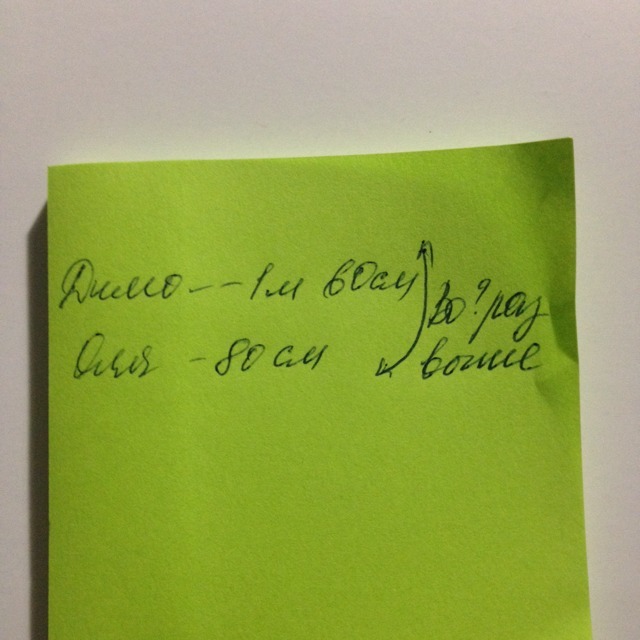 Дима -- 1м 60см
Оля - 80 см
Во ? раз
выше